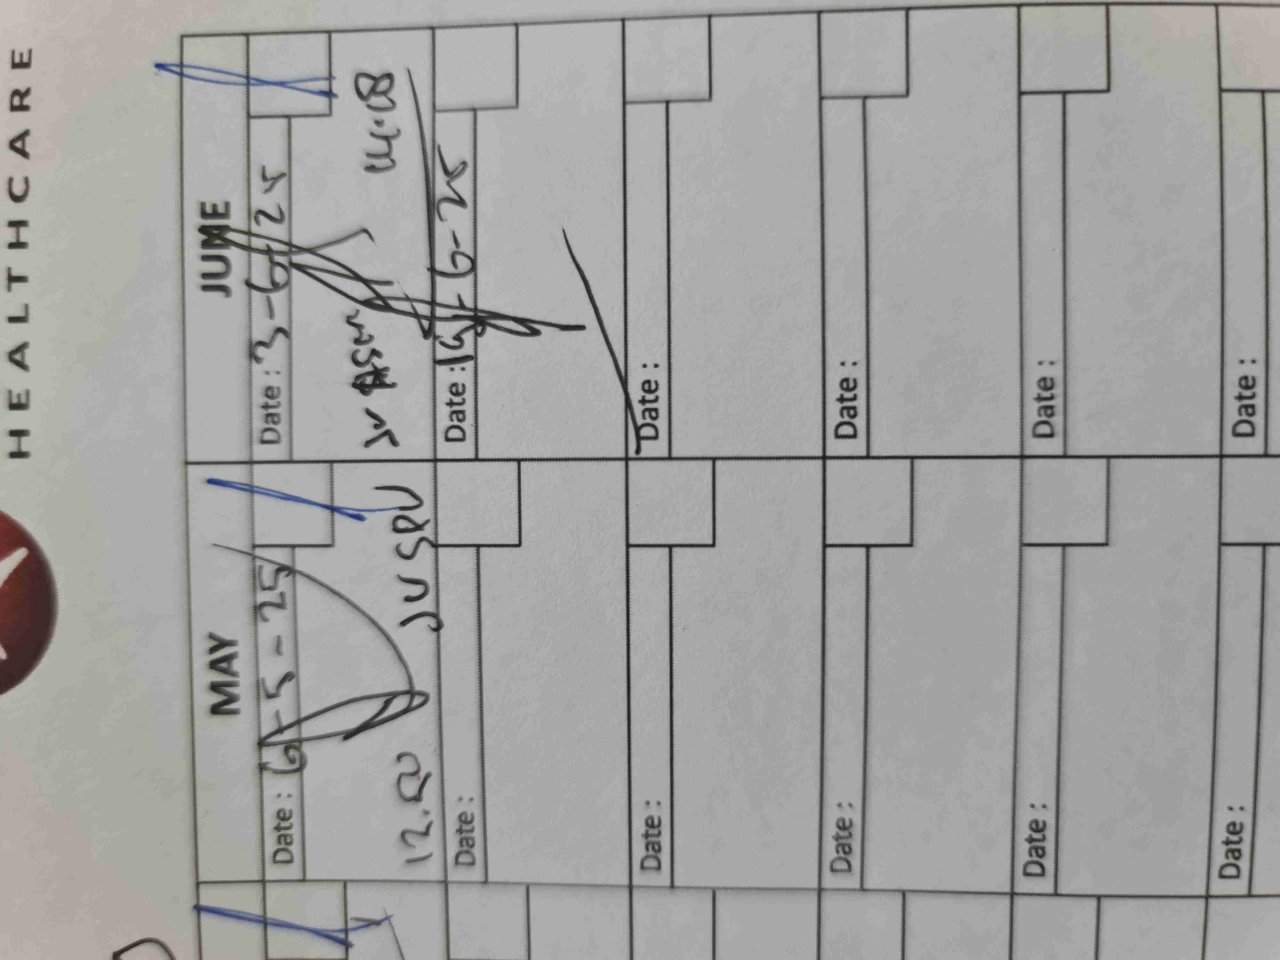 HEALTHCARE
MAY
Date : 6-5-25
12.50
JU SPU
Date :
Date :
Date :
Date :
Date :
JUME
Date : 3-6-25
14.08
Date : 19-6-25
Date :
Date :
Date :
Date :